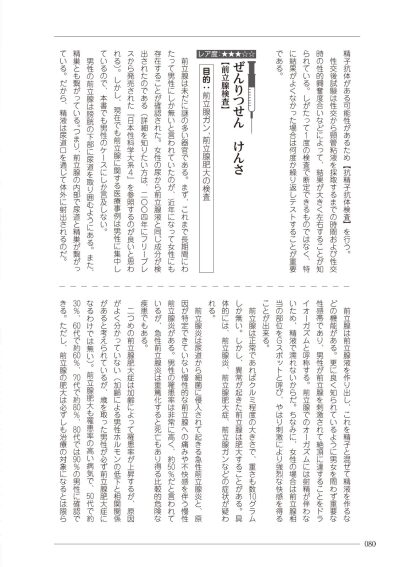 精子抗体がある可能性があるため【抗精子抗体検査】を行う。
性交後試験は性交から頸管粘液を採取するまでの時間および性交
時の性的興奮度合いなどによって、結果が大きく左右することが知
られている。したがって一度の検査で断定できるものではなく、特
に結果がよくなかった場合は何度か繰り返しテストすることが重要
である。
レア度：★★★☆☆
ぜんりつせん　けんさ
【前立腺検査】
目的：前立腺ガン、前立腺肥大の検査
前立腺は未だに謎の多い器官である。まず、これまで長期間にわ
たって男性にしか無いと言われていたのが、近年になって女性にも
存在することが確認された。女性の尿から前立腺液と同じ成分が検
出されたのである（詳細を知りたい方は、二〇〇四年にフリープレ
スから発売された「日本性科学大系４」を参照するのが良いと思わ
れる）。しかし、現在でも前立腺に関する医療事例は男性に集中し
ているので、本書でも男性のケースにしか言及しない。
男性の前立腺は膀胱の下部に尿道を取り囲むようにある。また、
精巣とも繋がっている。つまり、前立腺の内部で尿道と精巣が繋がっ
ている。だから、精液は尿道口を通じて体外に射出されるのだ。
前立腺は前立腺液を作り出し、これを精子と混ぜて精液を作るな
どの機能がある。更に良く知られているように男女を問わず重要な
性感帯であり、男性が前立腺を刺激されて絶頂に達することをドラ
イオーガズムと呼称する。前立腺でのオーガズムには射精が伴わな
いため、精液で濡れないからだ。ちなみに、女性の場合は前立腺相
当の部位をＧスポットと呼び、やはり刺激により強烈な快感を得る
ことが出来る。
前立腺は正常であればクルミ程度の大きさで、重さも数10グラム
しか無い。しかし、異常が起きた前立腺は肥大することがある。具
体的には、前立腺炎、前立腺肥大症、前立腺ガンなどの症状が疑わ
れる。
前立腺炎は尿道から細菌に侵入されて起きる急性前立腺炎と、原
因が特定できていない慢性的な前立腺への痛みや不快感を伴う慢性
前立腺炎がある。男性の罹患率は非常に高く、約50％だと言われて
いるが、急性前立腺炎は重篤化すると死亡もあり得る比較的危険な
疾患でもある。
二つめの前立腺肥大症は加齢によって罹患率が上昇するが、原因
がよく分かっていない（加齢による男性ホルモンの低下と相関関係
があると考えられているが、歳を取った男性が必ず前立腺肥大症に
なるわけでは無い）。前立腺肥大も罹患率の高い病気で、50代で約
30％、60代で約60％、70代で約80％、80代では90％の男性に確認で
きる。ただし、前立腺の肥大は必ずしも治療の対象になるとは限ら
080